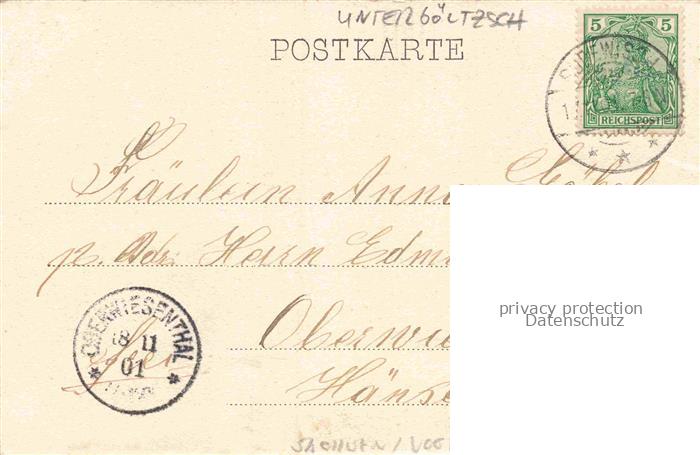 UNTERGÖLTZSCH
POSTKARTE
5 5
REICHSPOST
Fräulein Anna
p. Adr. Herrn Edm
OBERWIESENTHAL
18 11
01
Oberwie
Häns
privacy protection
Datenschutz
SACHSEN / VOG